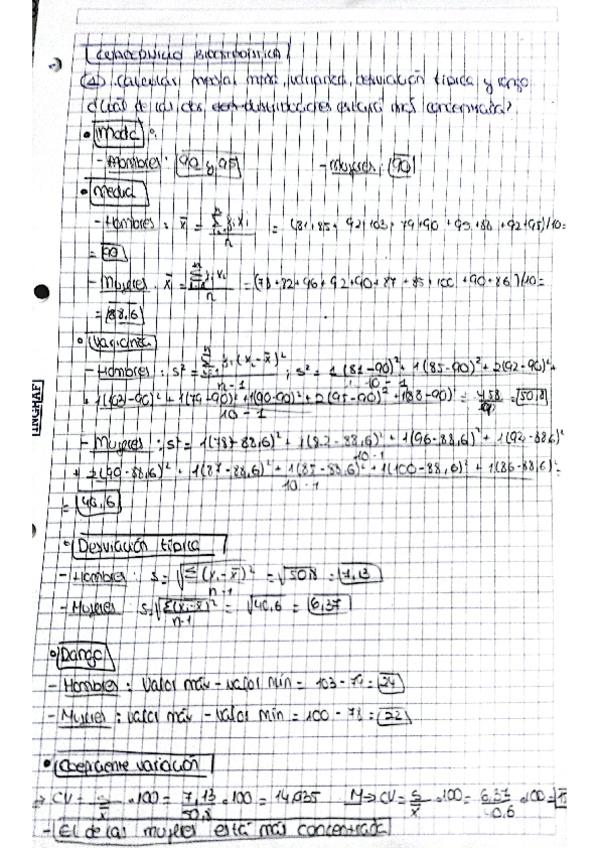 CUADERNILLO BIOESTADÍSTICA
④ Calcular media, moda, varianza, desviación típica y rango
¿Cuál de las dos distribuciones estará más concentrada?
• Moda:
- Hombres: 90 y 95 - Mujeres: 90
• Media
- Hombres: x̄ = Σ xᵢ / n = (81+85+92+103+79+90+95+88+92+95)/10 =
= 90
- Mujeres: x̄ = Σ xᵢ / n = (78+82+96+92+90+87+85+100+90+86)/10 =
= 88,6
• Varianza
- Hombres: s² = (xᵢ - x̄)² / n-1 ; s² = 1(81-90)² + 1(85-90)² + 2(92-90)² +
+ 1(103-90)² + 1(79-90)² + 1(90-90)² + 2(95-90)² + 1(88-90)² / 10-1 = 458/9 = 50,8
- Mujeres: s² = 1(78-88,6)² + 1(82-88,6)² + 1(96-88,6)² + 1(92-88,6)²
+ 2(90-88,6)² + 1(87-88,6)² + 1(85-88,6)² + 1(100-88,6)² + 1(86-88,6)² / 10-1
= 40,6
• Desviación típica
- Hombres: s = √Σ(xᵢ-x̄)² / n-1 = √50,8 = 7,13
- Mujeres: s = √Σ(xᵢ-x̄)² / n-1 = √40,6 = 6,37
• Rango
- Hombres: Valor máx - valor mín = 103 - 79 = 24
- Mujeres: valor máx - valor mín = 100 - 78 = 22
• Coeficiente variación
→ CV = s/x̄ · 100 = 7,13/50,8 · 100 = 14,035 M→ CV = s/x̄ · 100 = 6,37/40,6 · 100 =
- El de las mujeres está más concentrada
INGRAF